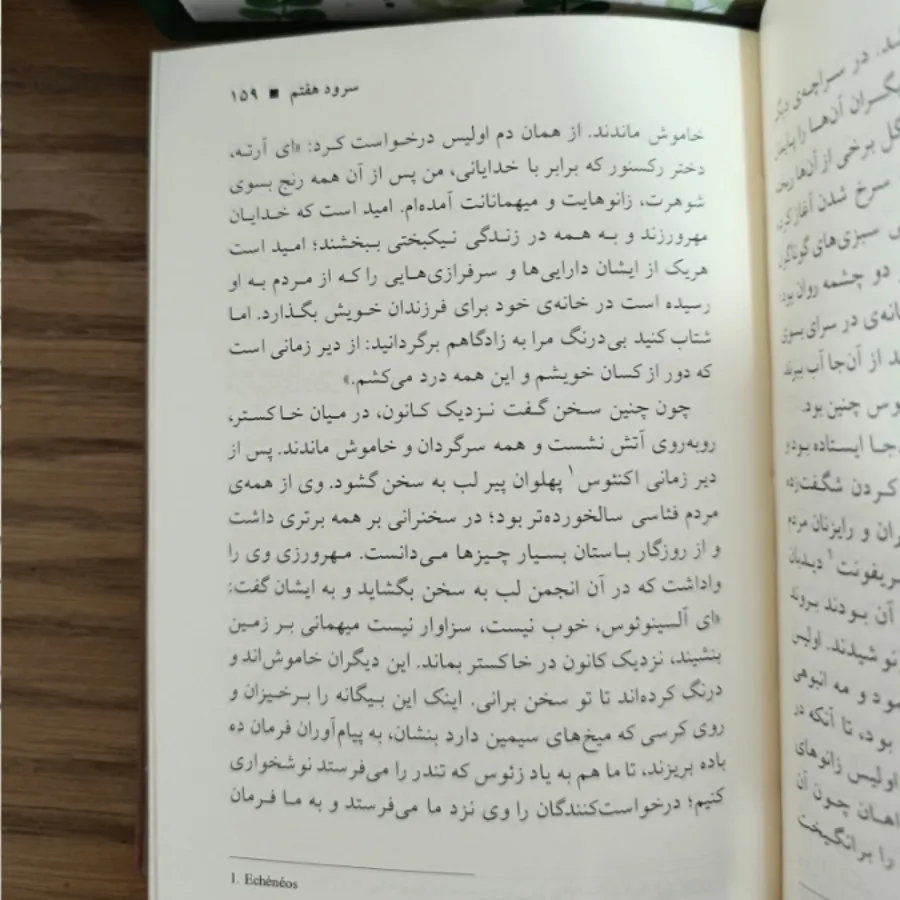 سرود هفتم ■ ۱۵۹
خاموش ماندند. از همان دم اولیس درخواست کرد: «ای آرته،
دختر رکسنور که برابر با خدایانی، من پس از آن همه رنج بسوی
شوهرت، زانوهایت و میهمانانت آمده‌ام. امید است که خدایان
مهرورزند و به همه در زندگی نیکبختی ببخشند؛ امید است
هریک از ایشان دارایی‌ها و سرفرازی‌هایی را که از مردم به او
رسیده است در خانه‌ی خود برای فرزندان خویش بگذارد. اما
شتاب کنید بی‌درنگ مرا به زادگاهم برگردانید: از دیر زمانی است
که دور از کسان خویشم و این همه درد می‌کشم.»
چون چنین سخن گفت نزدیک کانون، در میان خاکستر،
روبه‌روی آتش نشست و همه سرگردان و خاموش ماندند. پس از
دیر زمانی اکنئوس۱ پهلوان پیر لب به سخن گشود. وی از همه‌ی
مردم فئاسی سالخورده‌تر بود؛ در سخنرانی بر همه برتری داشت
و از روزگار باستان بسیار چیزها می‌دانست. مهرورزی وی را
واداشت که در آن انجمن لب به سخن بگشاید و به ایشان گفت:
«ای آلسینوئوس، خوب نیست، سزاوار نیست میهمانی بر زمین
بنشیند، نزدیک کانون در خاکستر بماند. این دیگران خاموش‌اند و
درنگ کرده‌اند تا تو سخن برانی. اینک این بیگانه را برخیزان و
روی کرسی که میخ‌های سیمین دارد بنشان، به پیام‌آوران فرمان ده
باده بریزند، تا ما هم به یاد زئوس که تندر را می‌فرستد نوشخواری
کنیم؛ درخواست‌کنندگان را وی نزد ما می‌فرستد و به ما فرمان
1. Echénéos
شد. در سراچه‌ی دیگر
گل برخی از آن‌ها
سرخ شدن آغاز کرد
سبزی‌های گوناگون
دو چشمه روان بود:
در سرای بسوی
از آن‌جا آب ببرند
چنین بود.
ایستاده بود و
کردن شگفت‌زده
و رایزنان مردم
دیدبان
آن بودند بروند
نوشیدند. اولیس
و مه انبوهی
بود، تا آنکه در
اولیس زانوهای
چون آن
را برانگیخت